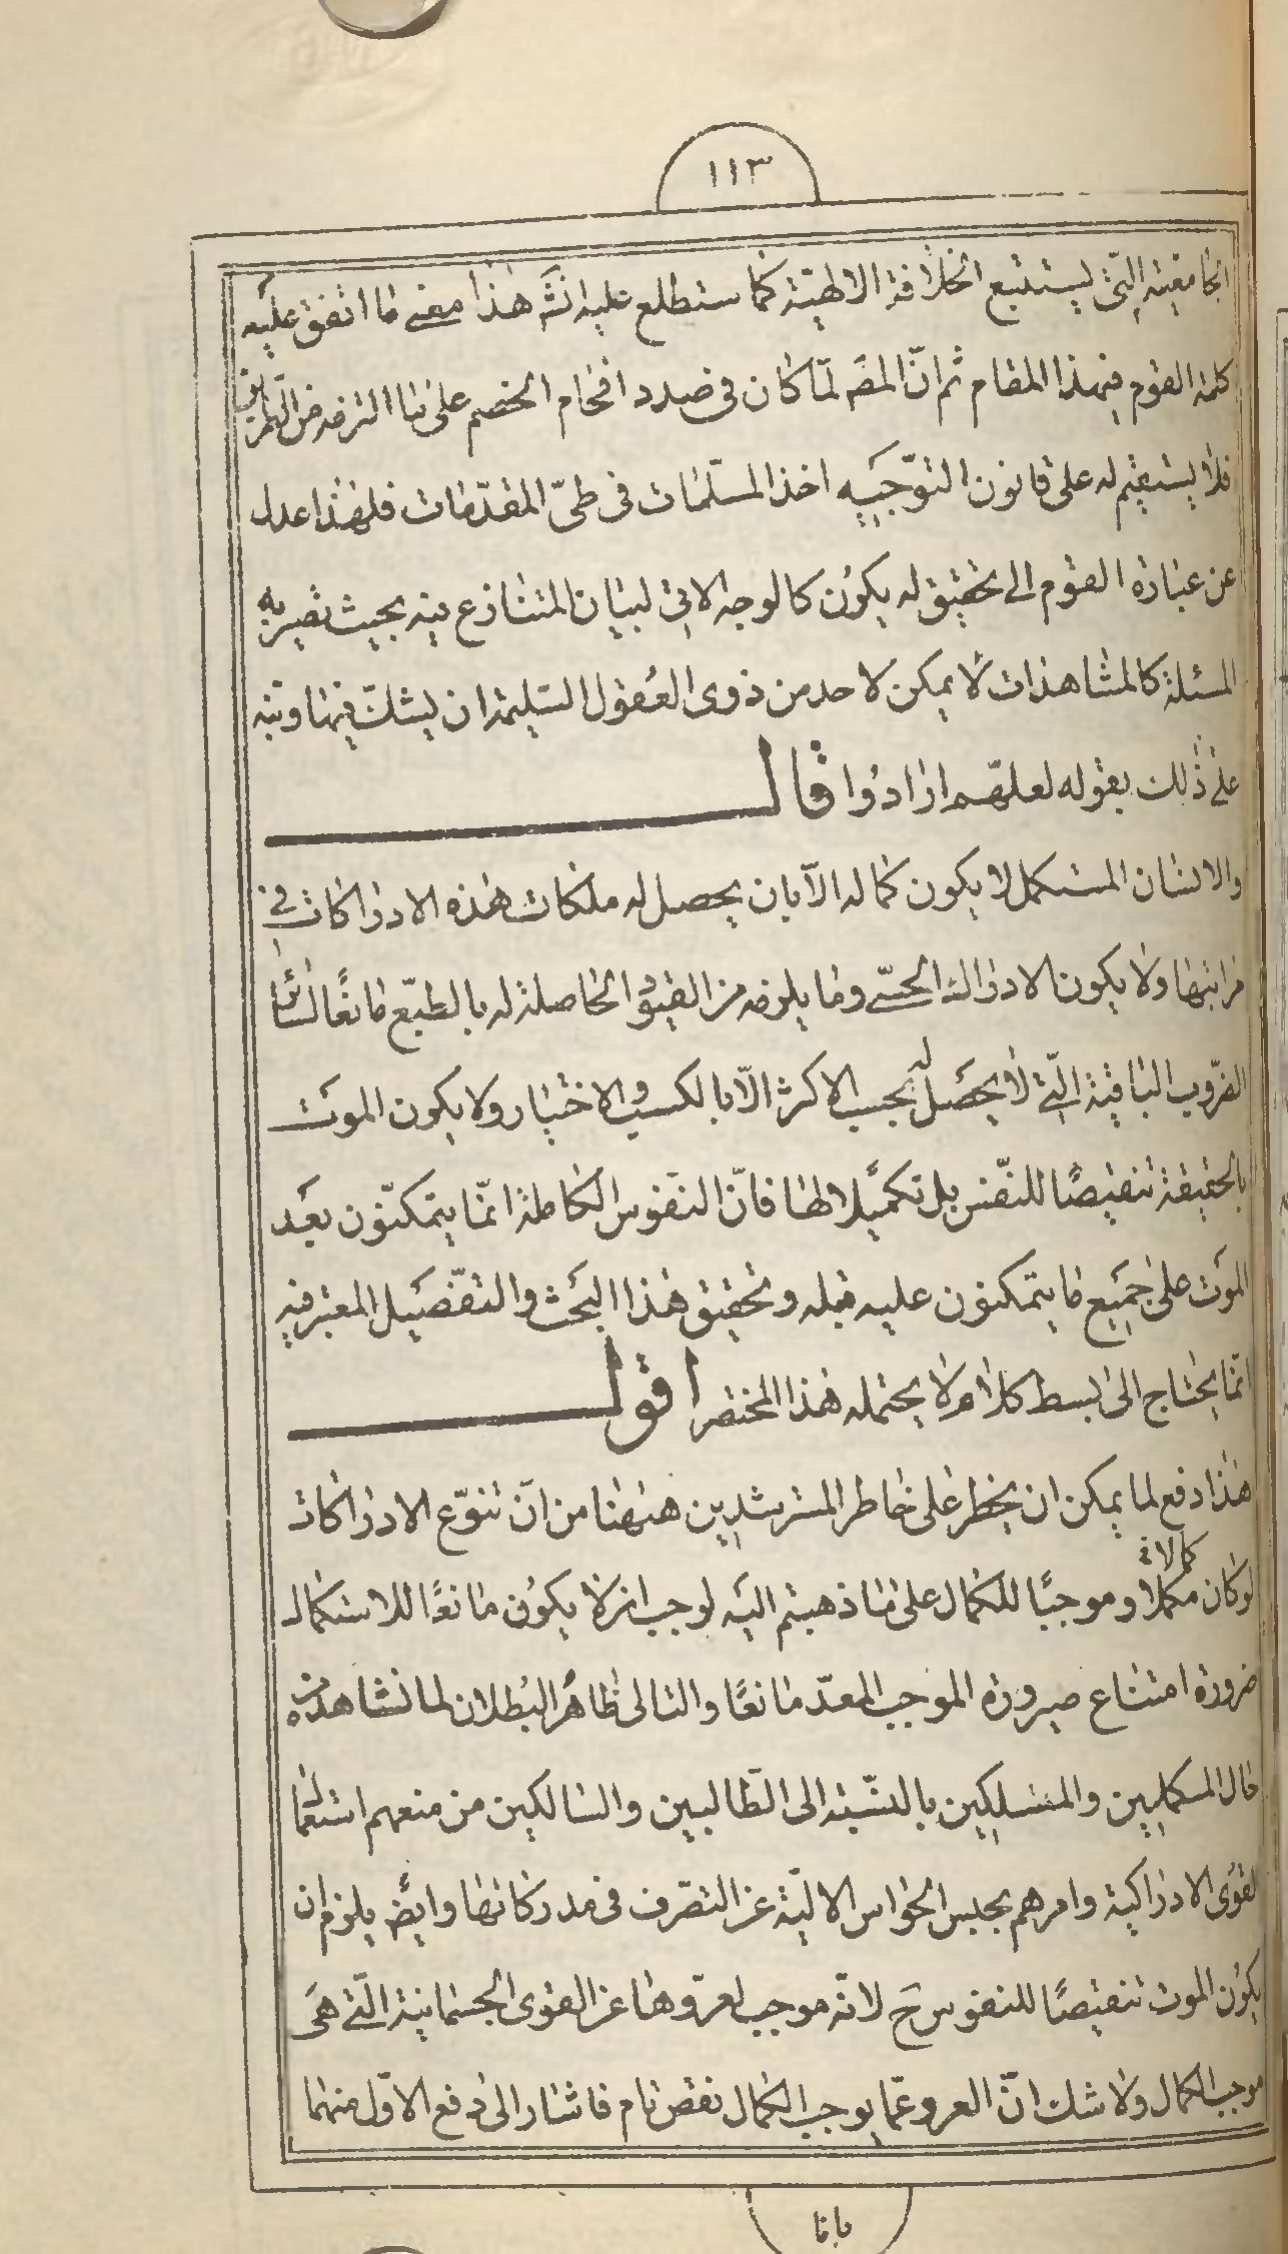 ١١٣
الجامعية التى يستتبع الخلافة الالهية كما ستطلع عليه انشَ هذا معنى ما اتفق عليه
كلمة القوم فيهذا المقام ثم انّ المصَ لمّا كان فى صدد افحام الخصم على ما التزمه من الطريق
فلا يستقيم له على قانون التوجيه اخذ المسلّمات فى طىّ المقدّمات فلهذا عدل
عن عبارة القوم الى تحقيق له يكون كالوجه الانى لبيان المتنازع فيه بحيث تصير به
المسئلة كالمشاهدات لا يمكن لاحد من ذوى العقول السليمة ان يشكّ فيها ونبّه
على ذلك بقوله لعلهم ارادوا قال
والانسان المستكمل لا يكون كماله الاّ بان يحصل له ملكات هذه الادراكات فى
مراتبها ولا يكون الادراك الحسّى وما يلزمه من القيود الحاصلة له بالطبع مانعًا لسائر
الضروب الباقية الّتى لا يحصل له بحسب الاكثر الاّ بالكسب والاختيار ولا يكون الموت
بالحقيقة تنقيصًا للنّفس بل تكميلا لها فانّ النفوس الكاملة انّما يتمكنّون بعد
الموت على جميع ما يتمكنون عليه قبله وتحقيق هذا البحث والتفصيل المعتبر فيه
انّما يحتاج الى بسط كلام لا يحتمله هذا المختصر اقول
هذا دفع لما يمكن ان يخطر على خاطر المسترشدين هيهنا من انّ تنوّع الادراكات
لو كان مكملا كمالاته وموجبًا للكمال على ما ذهبتم اليه لوجب ان لا يكون مانعًا للاستكمال
ضرورة امتناع صيرورة الموجب المعدّ مانعًا والتالى ظاهر البطلان لما نشاهده من
حال المسكملين والمسلكين بالنّسبة الى الطّالبين والسالكين من منعهم استعمال
لقوى الادراكية وامرهم بحبس الحواس الالية عن التصرّف فى مدركاتها وايضَ يلزم ان
يكون الموت تنقيصًا للنفوس حَ لانه موجب لعروها عن القوى الجسمانية الّتى هى
موجب الكمال ولا شك انّ العرو عمّا يوجب الكمال نقص تام فاشار الى دفع الاوّل منهما